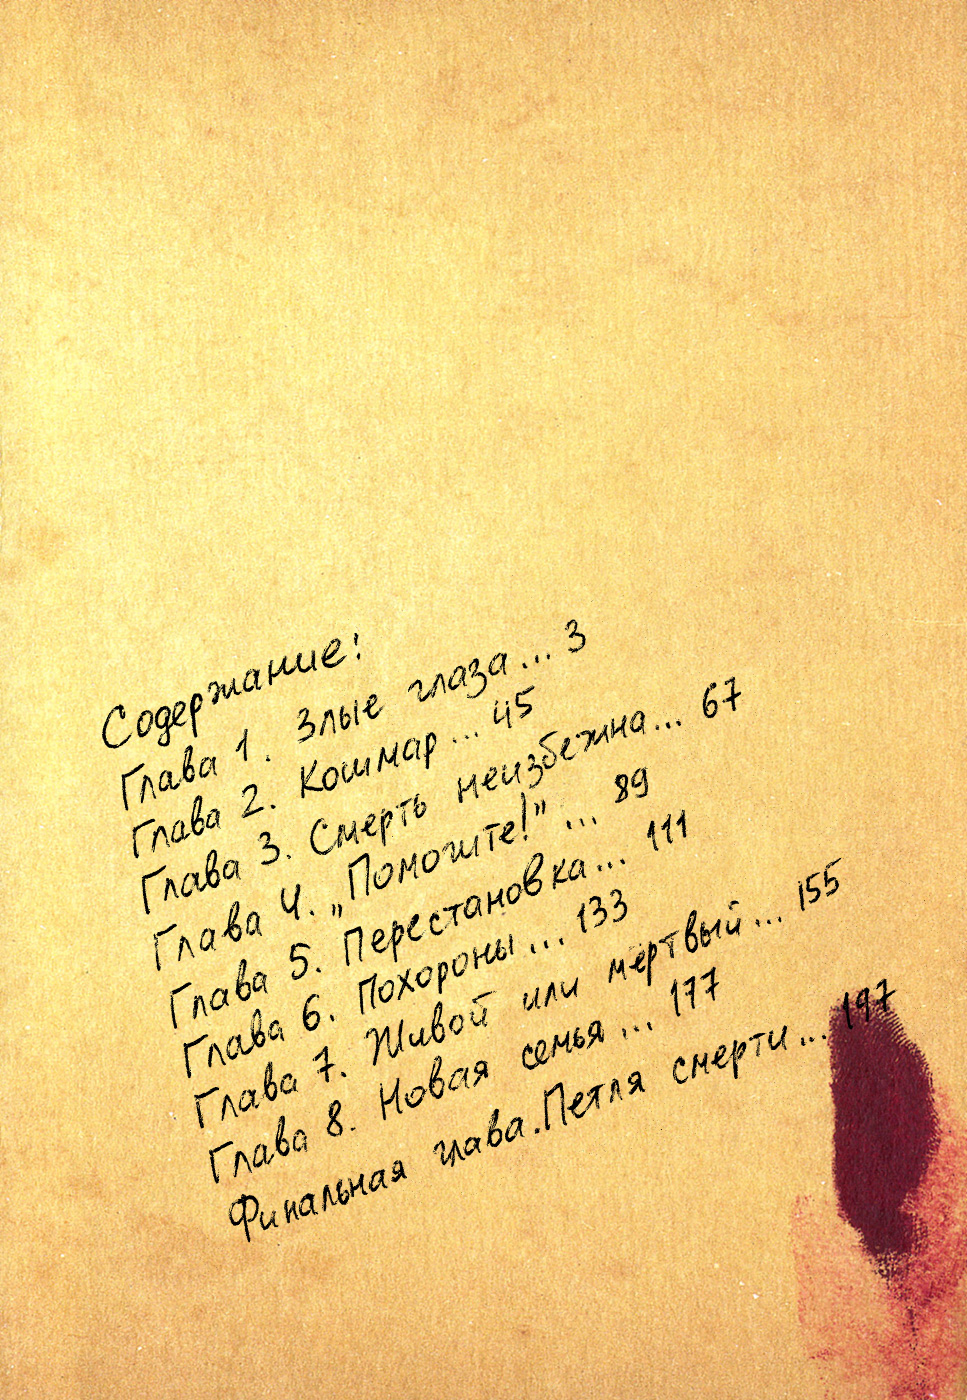 Содержание:
Глава 1. Злые глаза... 3
Глава 2. Кошмар... 45
Глава 3. Смерть неизбежна... 67
Глава 4. „Помогите!”... 89
Глава 5. Перестановка... 111
Глава 6. Похороны... 133
Глава 7. Живой или мёртвый... 155
Глава 8. Новая семья... 177
Финальная глава. Петля смерти... 197